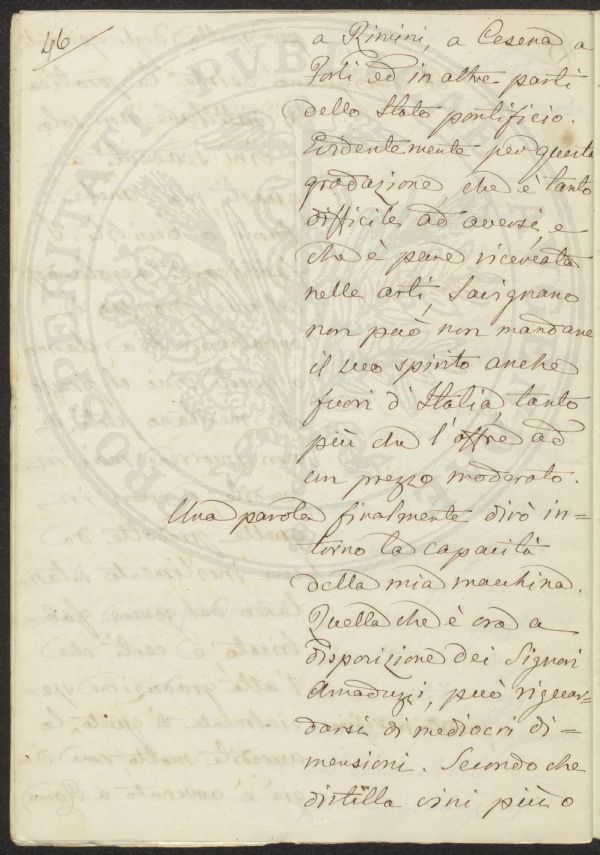 46
a Rimini, a Cesena a
Forlì ed in altre parti
dello Stato pontificio.
Evidentemente per questa
gradazione, che è tanto
difficile ad aversi, e
che è pure ricercata
nelle arti, Savignano
non può non mandare
il suo spirito anche
fuori d'Italia, tanto
più che l'offre ad
un prezzo moderato.
Una parola finalmente dirò in=
torno la capacità
della mia macchina.
Quella che è ora a
disposizione dei Signori
Amaduzzi, può riguar=
darsi di mediocri di=
mensioni. Secondo che
distilla vini più o